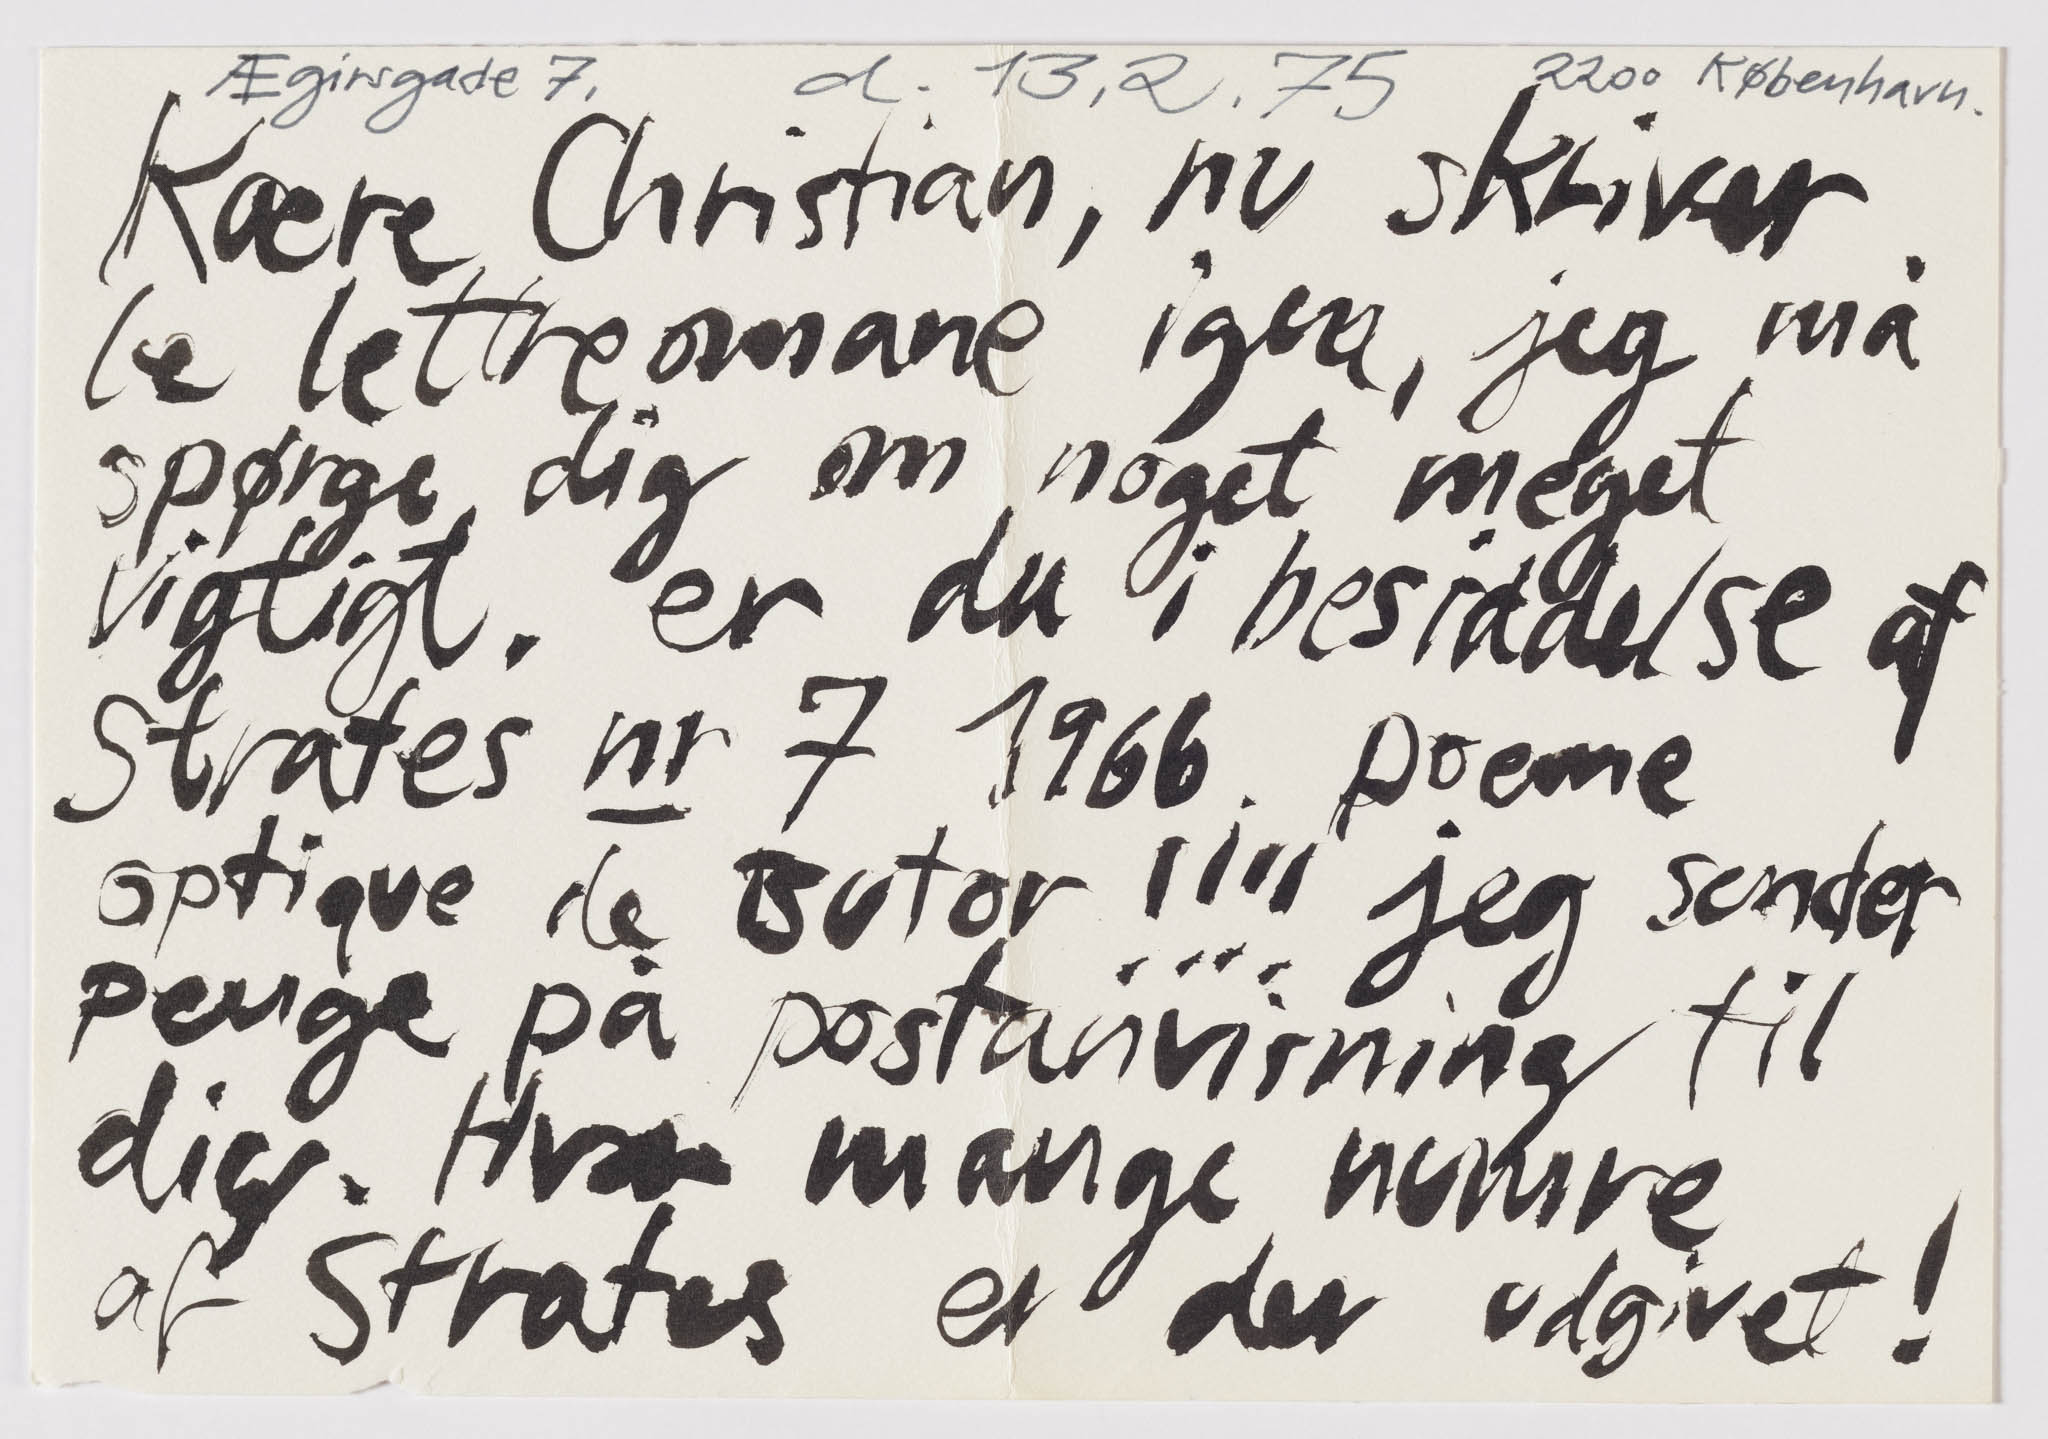 Ægirsgade 7. d. 13.2.75 2200 København.
Kære Christian, nu skriver
le lettreomane igen, jeg må
spørge dig om noget meget
vigtigt. er du i besiddelse af
Strates nr 7 1966. poeme
optique de Butor !!!! jeg sender
penge på postanvisning til
dig. Hvor mange numre
af Strates er der udgivet!